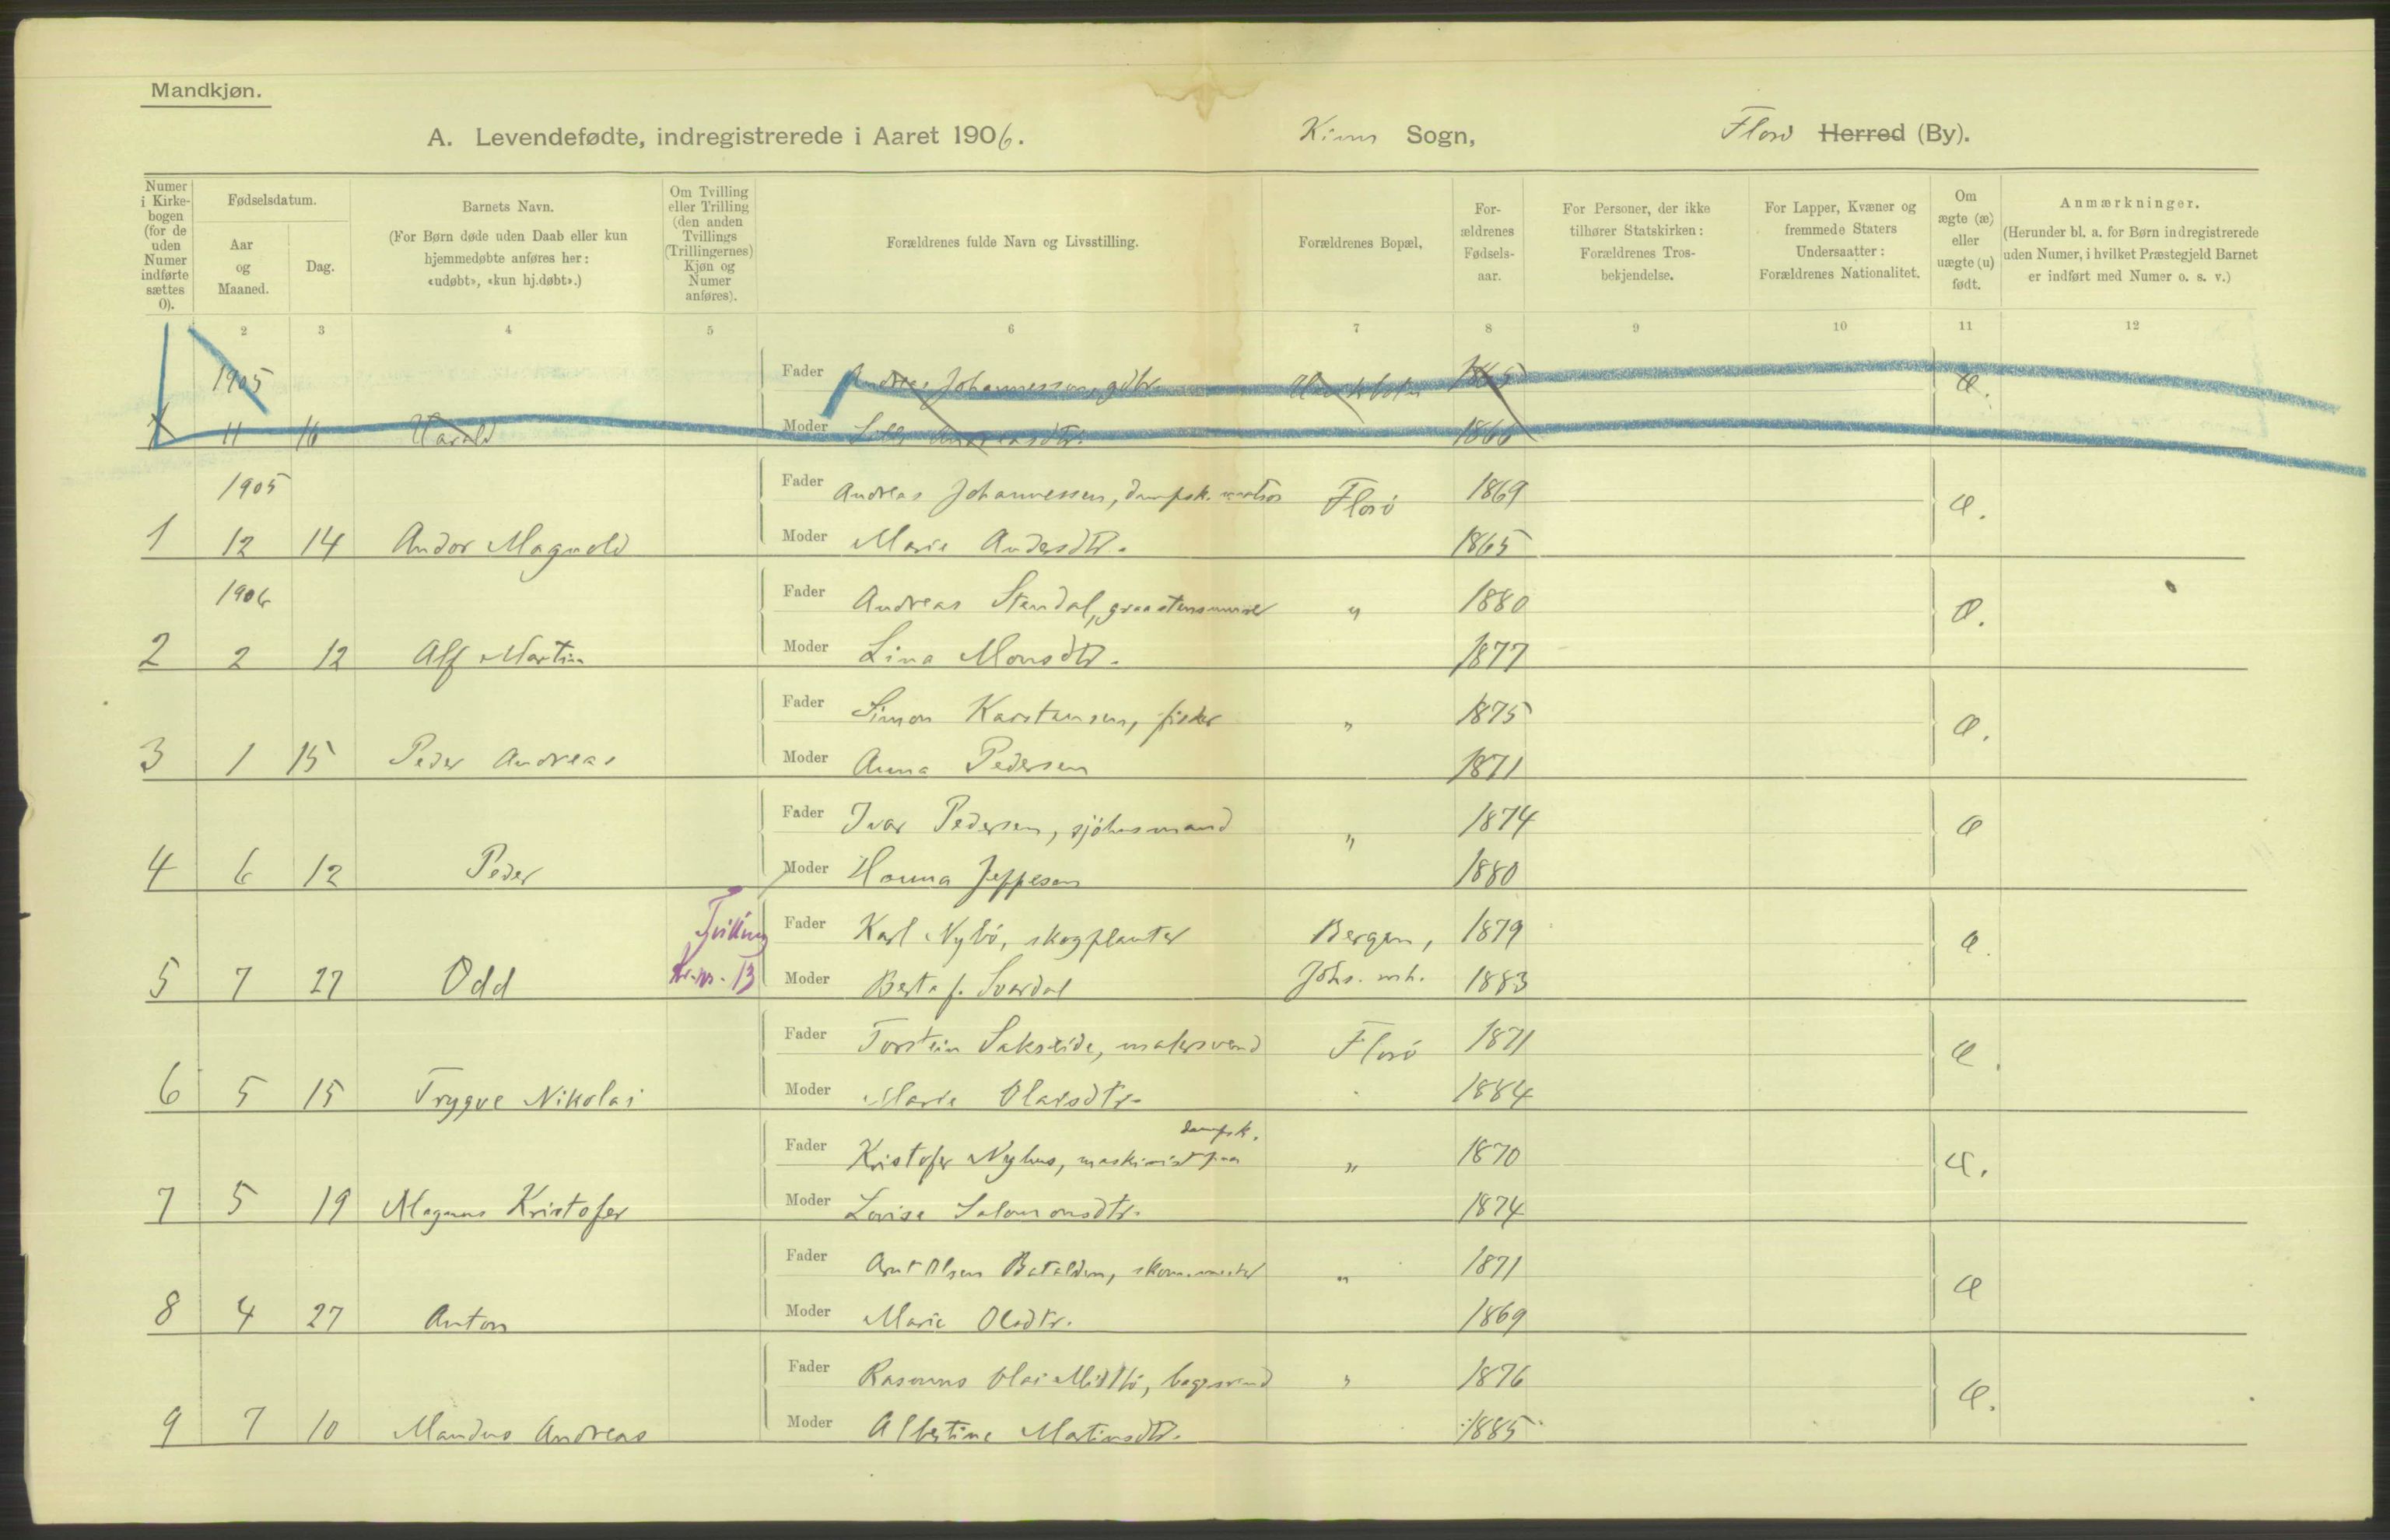 Mandkjøn.
A. Levendefødte, indregistrerede i Aaret 1906. Kinn Sogn, Florø Herred (By).
Numer i Kirkebogen (for de uden Numer indførte sættes 0).
Fødselsdatum.
Aar og Maaned.
Dag.
Barnets Navn.
(For Børn døde uden Daab eller kun hjemmedøbte anføres her: «udøbt», «kun hj.døbt».)
Om Tvilling eller Trilling (den anden Tvillings (Trillingernes) Kjøn og Numer anføres).
Forældrenes fulde Navn og Livsstilling.
Forældrenes Bopæl,
Forældrenes Fødselsaar.
For Personer, der ikke tilhører Statskirken: Forældrenes Trosbekjendelse.
For Lapper, Kvæner og fremmede Staters Undersaatter: Forældrenes Nationalitet.
Om ægte (æ) eller uægte (u) født.
Anmærkninger.
(Herunder bl. a. for Børn indregistrerede uden Numer, i hvilket Præstegjeld Barnet er indført med Numer o. s. v.)
2 3 4 5 6 7 8 9 10 11 12
1905 Fader Andreas Johannessen, gdbr. 1865 æ.
1 11 16 Harald Moder Andreasdtr. 1866
1905 Fader Andreas Johannessen, dampsk. matros Florø 1869 æ.
1 12 14 Andor Magnold Moder Marie Andersdtr. 1865
1906 Fader Andreas Stendal, graastensmurer " 1880 æ.
2 2 12 Alf Martin Moder Lina Monsdtr. 1877
Fader Simon Karstensen, fisker " 1875 æ.
3 1 15 Peder Andreas Moder Anna Pedersen 1871
Fader Ivar Pedersen, sjøhusmand " 1874 æ
4 6 12 Peder Moder Hanna Jeppesen 1880
Tvilling Fader Karl Nybø, skogplanter Bergen, 1879 æ.
5 7 27 Odd kv. nr. 13 Moder Berta f. Svardal Johs. mh. 1883
Fader Torstein Sakseide, malersvend Florø 1871 æ.
6 5 15 Trygve Nikolai Moder Marie Olaisdtr. 1884
dampsk.
Fader Kristofer Nyhus, maskinist paa " 1870 æ.
7 5 19 Magnus Kristofer Moder Lovise Salomonsdtr. 1874
Fader Arnt Olsen Batalden, skomamester " 1871 æ
8 4 27 Anton Moder Marie Olsdtr. 1869
Fader Rasmus Olai Midtbø, bagersvend " 1876 æ.
9 7 10 Mandus Andreas Moder Albertine Martinsdtr. 1885